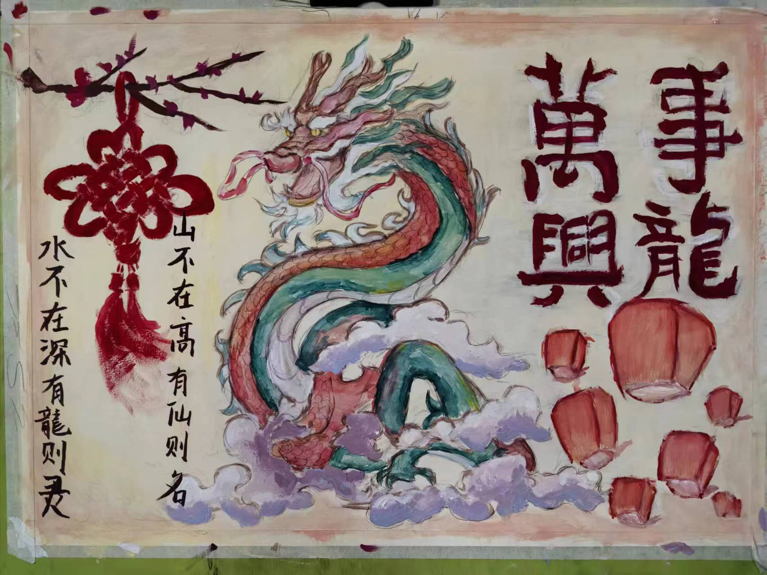 事龍
萬興
山不在高有仙则名
水不在深有龍则灵